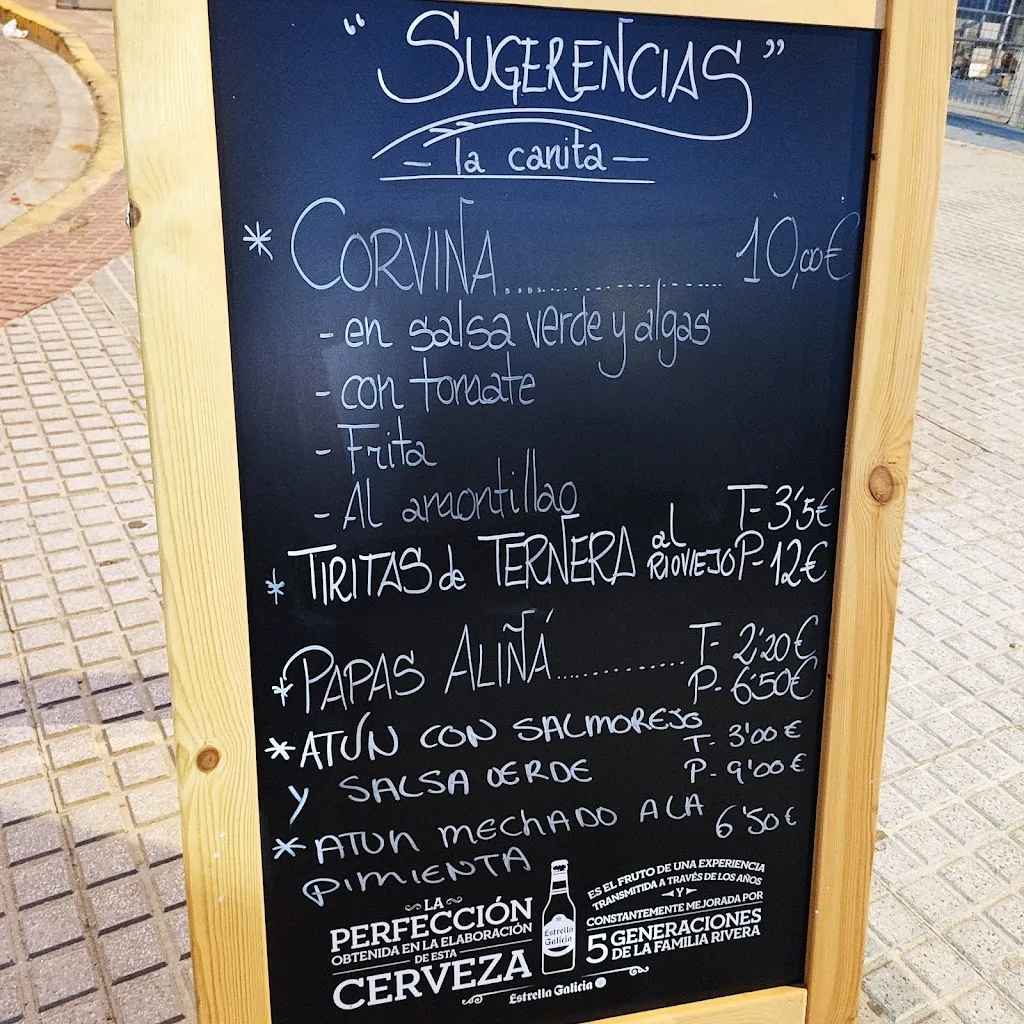 “SUGERENCIAS”
- la canita -
* CORVINA.................... 10,00€
- en salsa verde y algas
- con tomate
- Frita
- Al amontillao
* TIRITAS de TERNERA al RIOVIEJO T- 3'5€
P- 12€
* PAPAS ALIÑÁ............ T- 2'20€
P- 6'50€
* ATÚN CON SALMOREJO T- 3'00€
y SALSA VERDE P- 9'00€
* ATUN MECHADO A LA 6'50€
PIMIENTA
LA
PERFECCIÓN
OBTENIDA EN LA ELABORACIÓN
DE ESTA
CERVEZA
Estrella
Galicia
ES EL FRUTO DE UNA EXPERIENCIA
TRANSMITIDA A TRAVÉS DE LOS AÑOS
Y
CONSTANTEMENTE MEJORADA POR
5 GENERACIONES
DE LA FAMILIA RIVERA
Estrella Galicia